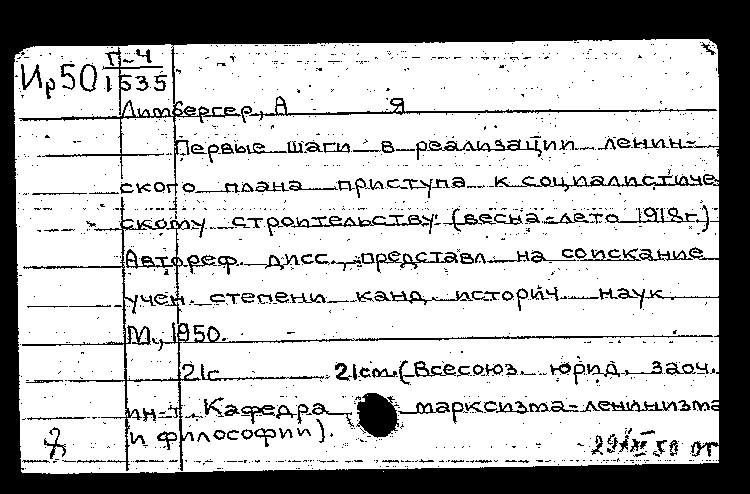 П-4
Ир50 1535
Лимбергер, А Я
Первые шаги в реализации ленин-
ского плана приступа к социалистиче
скому строительству (весна-лето 1918г.)
Автореф. дисс., представл. на соискание
учен. степени канд. историч. наук.
М., 1950.
21с 21см. (Всесоюз. юрид. заоч.
ин-т. Кафедра марксизма-ленинизма
и философии).
29 XI 50 ОТ